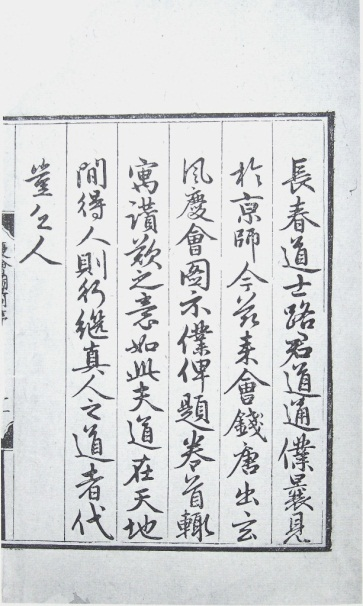 長春道士路君道通僕曩見
於京師今茲來會錢唐出玄
風慶會圖示僕俾題卷首輙
寓讃歎之意如此夫道在天地
間得人則行繼真人之道者代
豈乏人